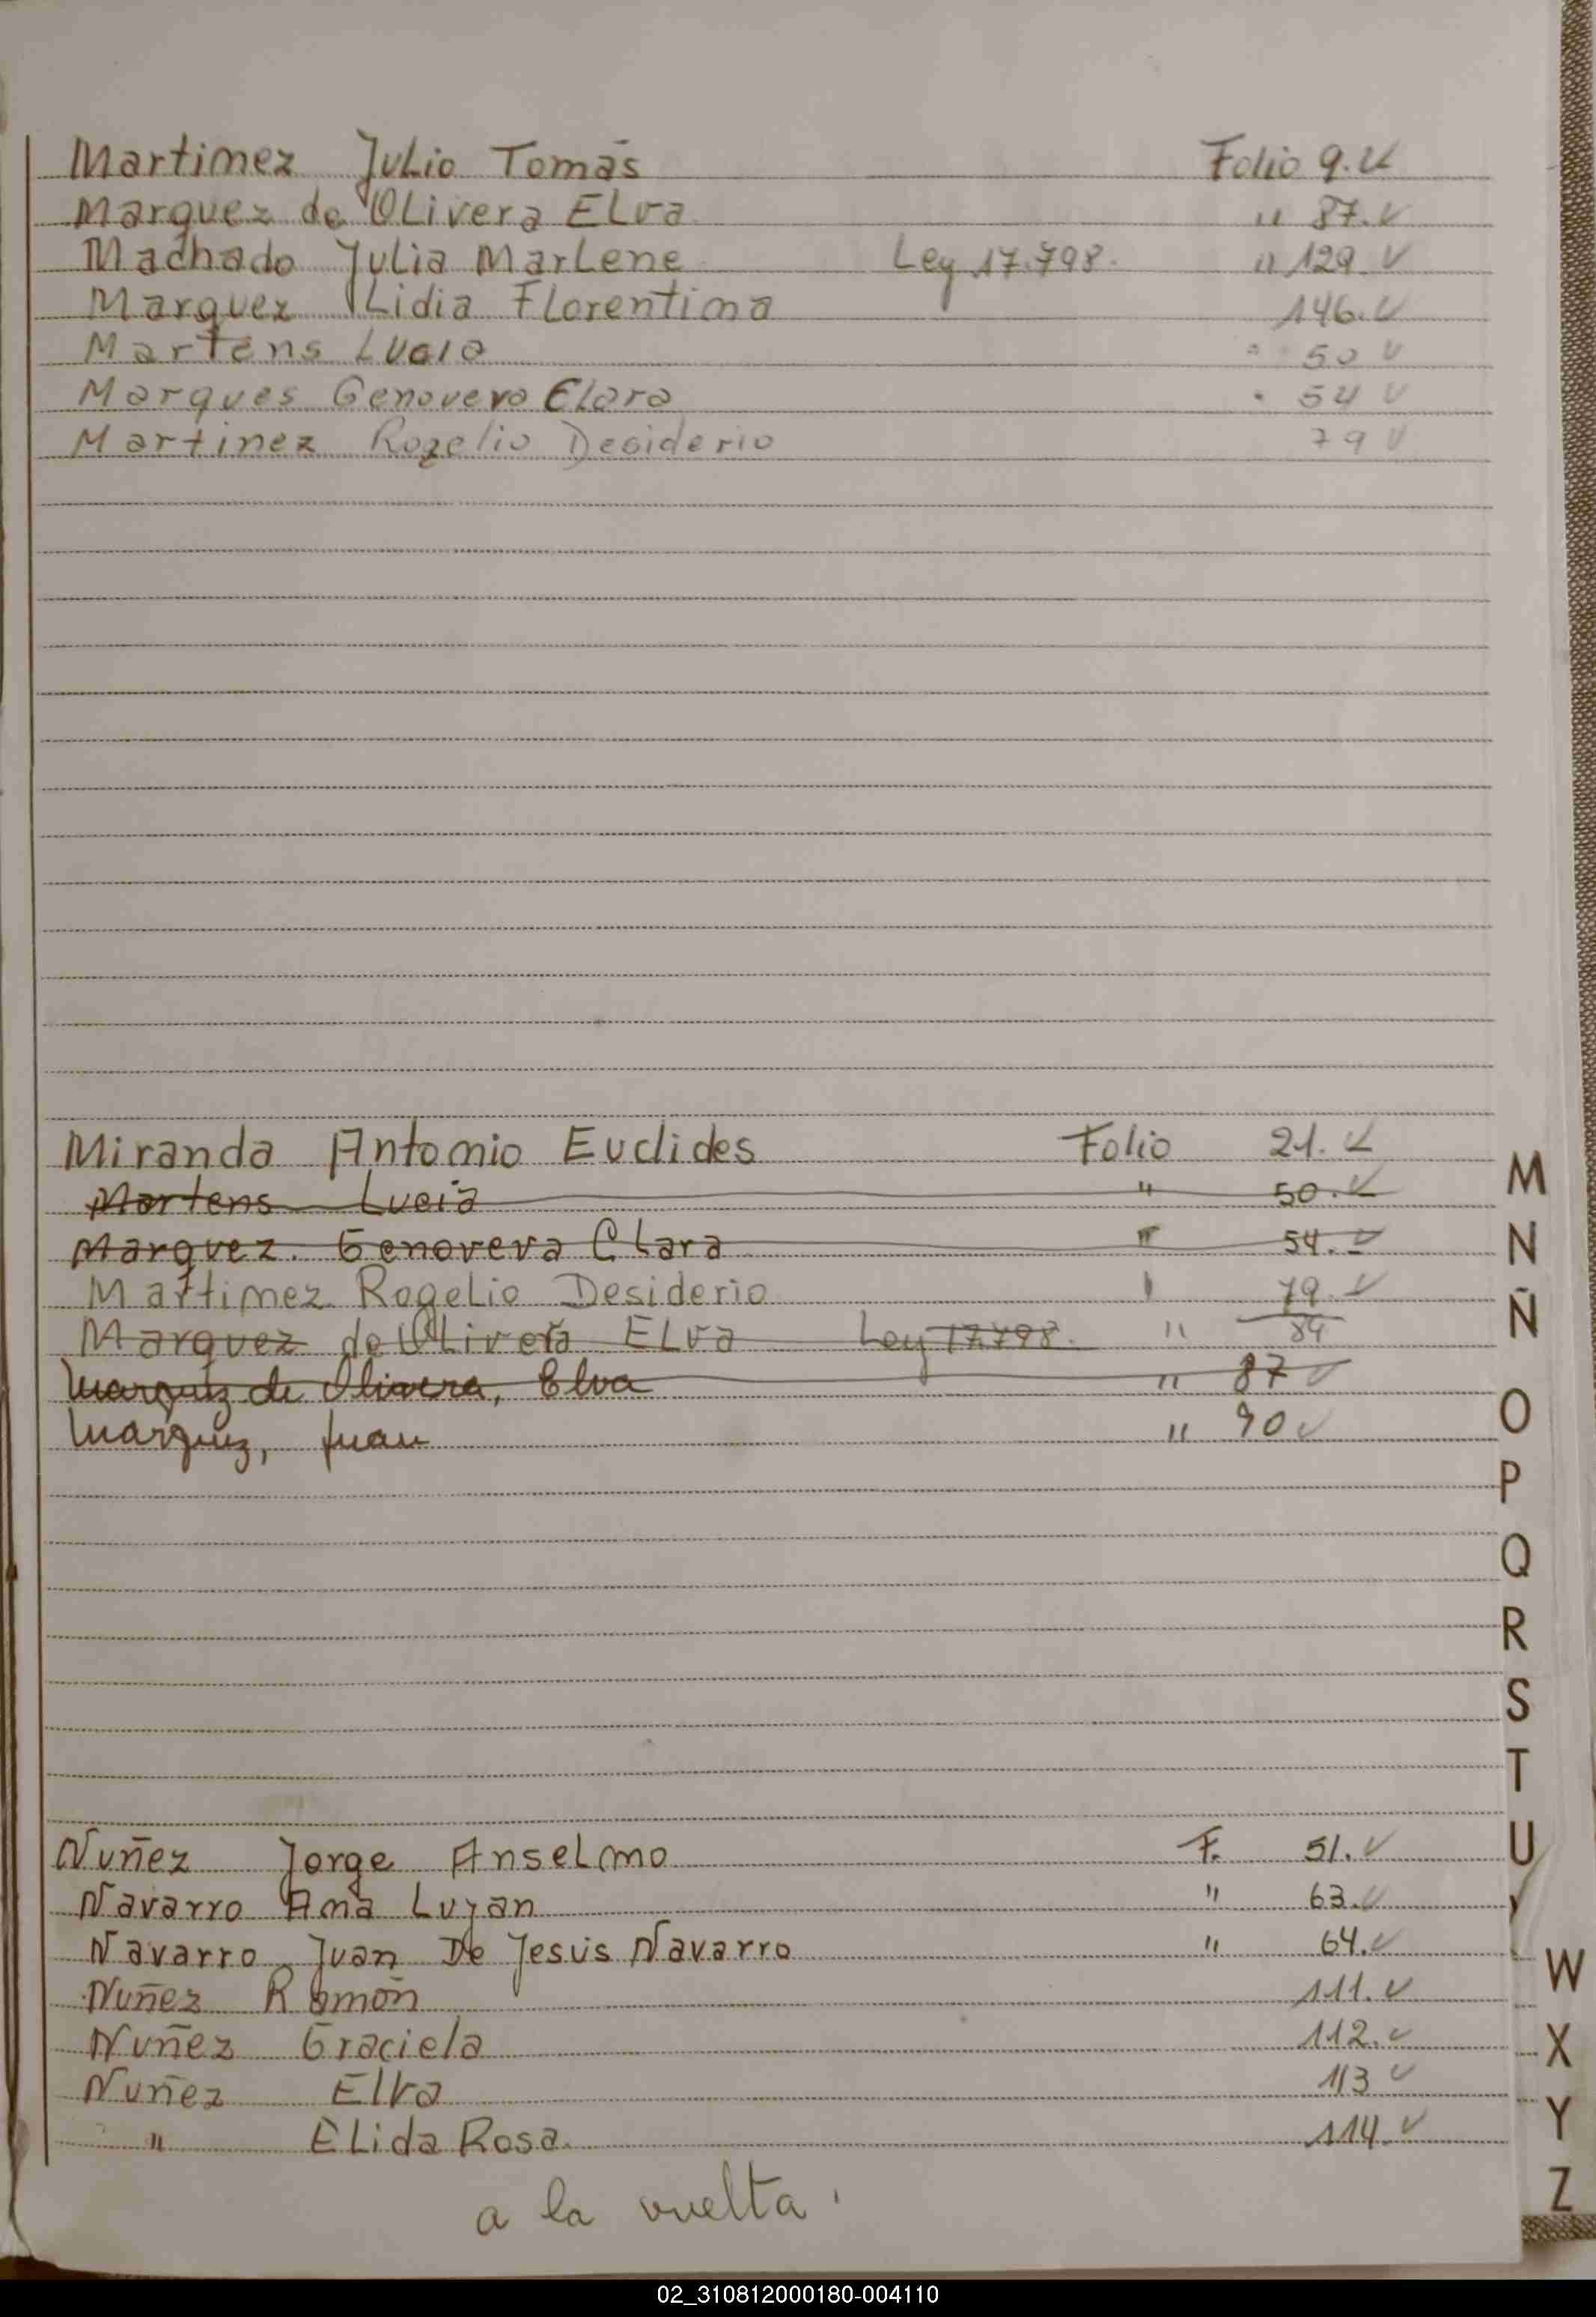 Martimez Julio Tomás Folio 9. ✓
Marquez de Olivera Elva " 87. ✓
Machado Julia Marlene Ley 17.798. " 129. ✓
Marquez Lidia Florentima 146. ✓
Martens Lucia " 50 ✓
Marques Genoveva Clara " 54 ✓
Martinez Rogelio Desiderio 79 ✓
Miranda Antomio Euclides Folio 21. ✓
Martens Lucia " 50. ✓
Marquez. Genoveva Clara " 54. ✓
Martimez Rogelio Desiderio " 79. ✓
Marquez de Olivera Elva Ley 17798. " 84
Marquez de Olivera, Elva " 87 ✓
Marquez, Juan " 90 ✓
Nuñez Jorge Anselmo F. 51. ✓
Navarro Ana Lujan " 63. ✓
Navarro Juan De Jesús Navarro " 64. ✓
Nuñez Ramón 111. ✓
Nuñez Graciela 112. ✓
Nuñez Elva 113 ✓
" Elida Rosa. 114. ✓
a la vuelta.
M
N
Ñ
O
P
Q
R
S
T
U
W
X
Y
Z
02_310812000180-004110